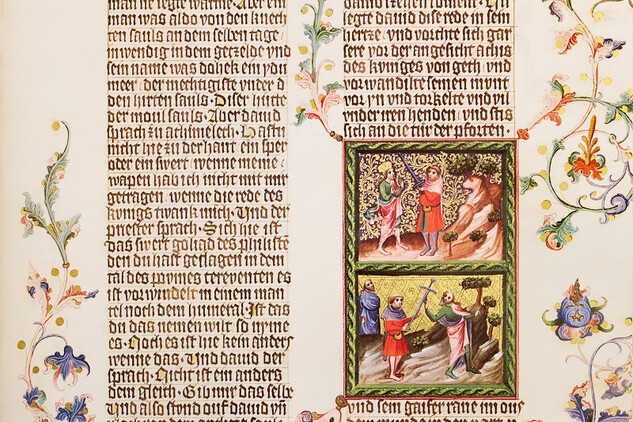 man was aldo von den knech
ten sauls an dem selben tage
inwendig in dem getzelde vnd
sein name was dohek ein ydu
meer der mechtigiste vnder
den hirten sauls Diser hutte
der moul sauls Aber dauid
sprach zu achimelech Hastu
nicht hie zu der hant ein sper
oder ein swert wenne meine
wapen hab ich nicht mit mir
getragen wenne die rede des
konigs twank mich Vnd der
priester sprach Sich hie ist
das swert golias des philiste
den du hast geslagen in dem
tal des
ist vorwindelt in einem man
tel noch dem humeral Ist das
du das nemen wilt so nyme
es Noch es ist hie kein anders
wenne das Vnd dauid der
sprach Nicht ist ein anders
dem gleich Gib mir das selbe
Vnd also stund auf dauid vn
legte dauid dise rede in sein
hertze vnd vorchte sich gar
sere vor der angesicht achis
des kuniges von geth vnd
vorwandilte seinen munt
vor yn vnd
inren henden vnd stis
sich an die tur der pforten
vnd sein